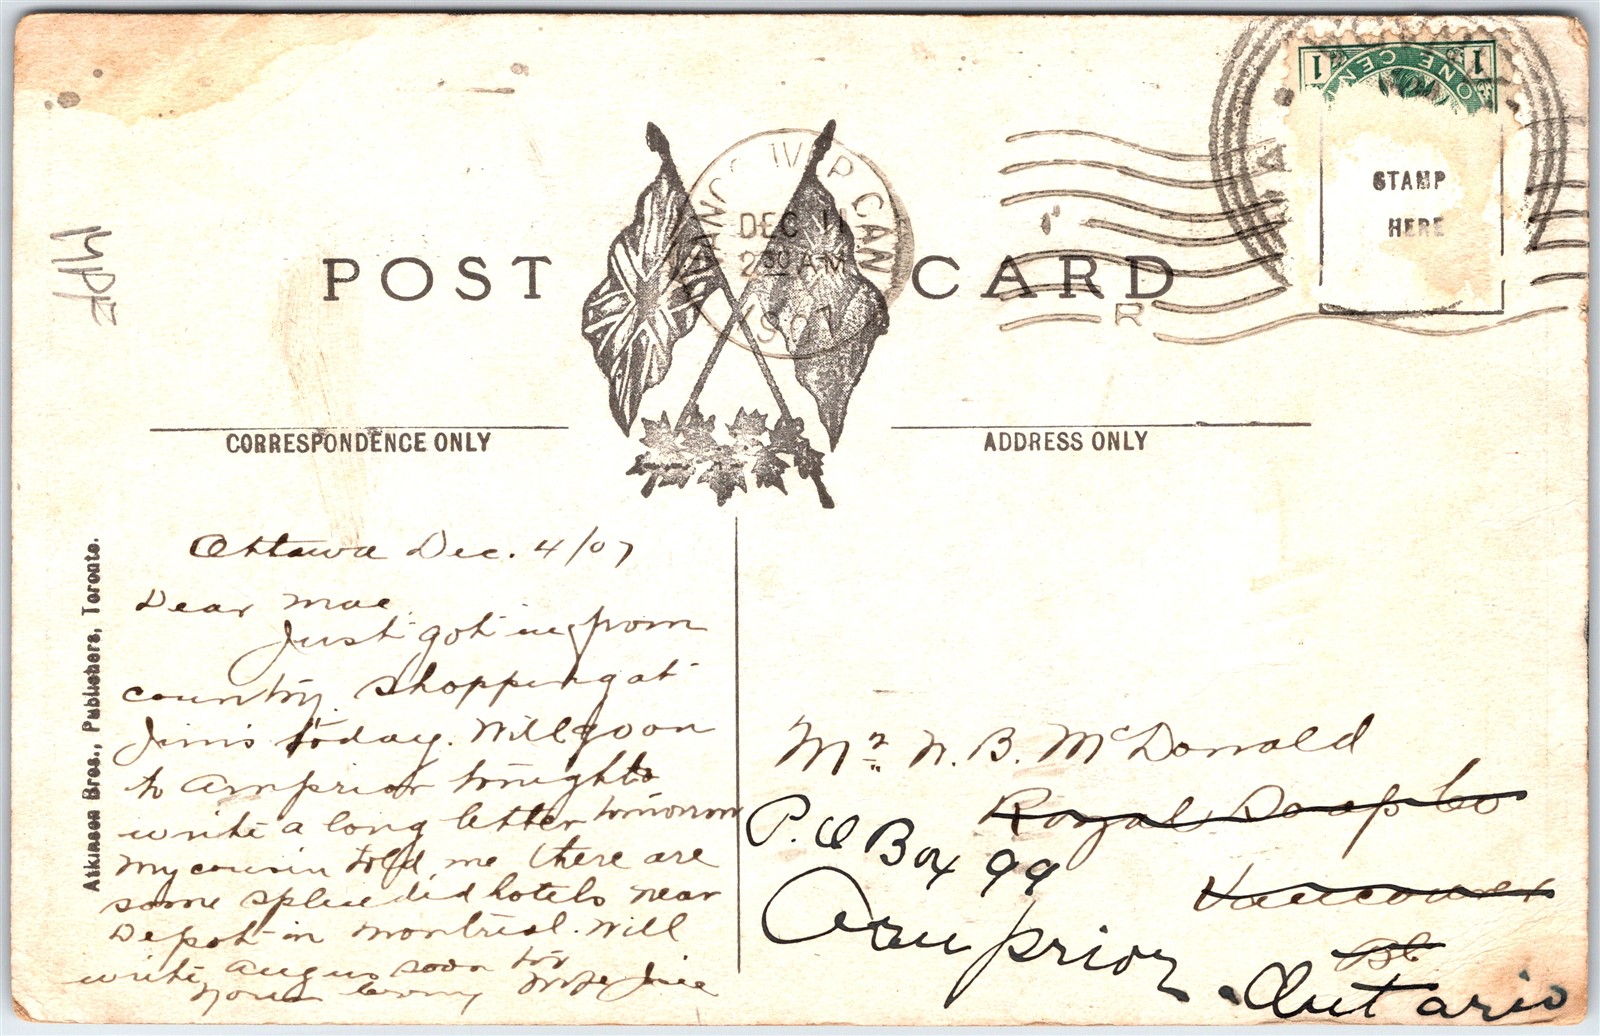 1 ONE CENT 1
STAMP
HERE
VANCOUVER CAN
DEC 11
2 30 AM
1907
POST CARD
R
CORRESPONDENCE ONLY
ADDRESS ONLY
Atkinson Bros., Publishers, Toronto.
Ottawa Dec. 4/07
Dear Mae.
Just got in from
country. Shopping at
Jim's today. Will go on
to Arnprior tonight to
write a long letter tomorrow
My cousin told me there are
some splendid hotels near
Depot in Montreal. Will
write Angus soon too
Yours
Mr. N. B. McDonald
Royal Soap Co
P.O Box 99
Vancouver
BC
Arnprior
Ontario